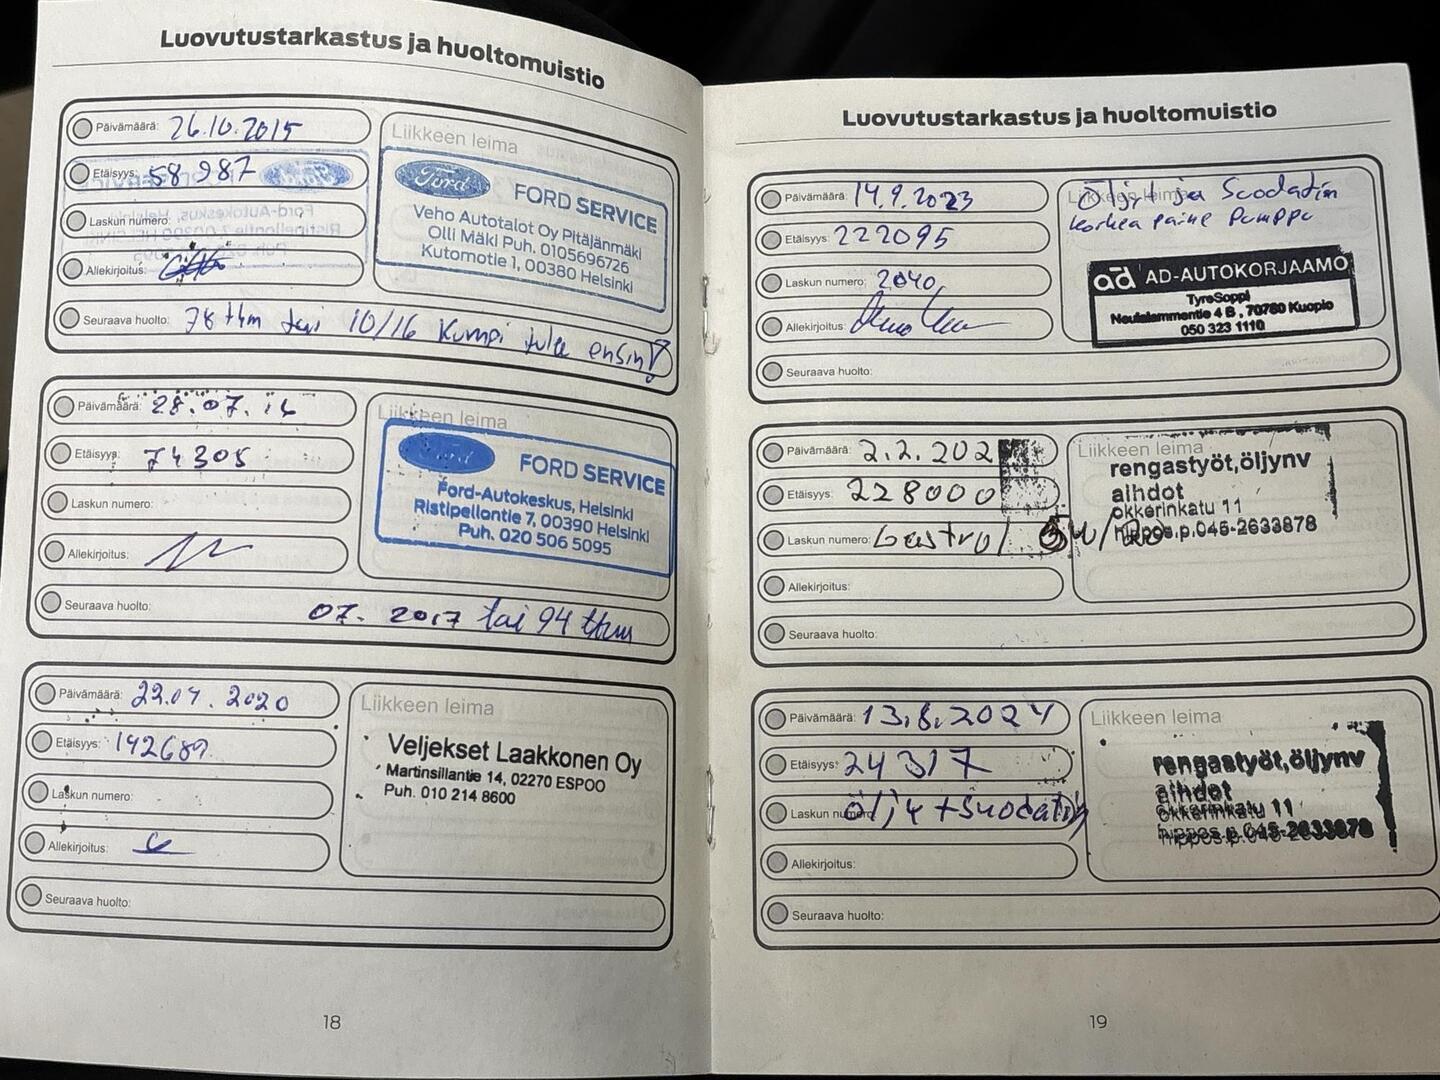 Luovutustarkastus ja huoltomuistio
Päivämäärä: 26.10.2015
Etäisyys: 58 987
Laskun numero:
Allekirjoitus:
Seuraava huolto: 78 tkm tai 10/16 kumpi tulee ensin!
Liikkeen leima
Ford
FORD SERVICE
Veho Autotalot Oy Pitäjänmäki
Olli Mäki Puh. 0105696726
Kutomotie 1, 00380 Helsinki
Päivämäärä: 28.07.16
Etäisyys: 74305
Laskun numero:
Allekirjoitus:
Seuraava huolto: 07. 2017 tai 94 tkm
Liikkeen leima
Ford
FORD SERVICE
Ford-Autokeskus, Helsinki
Ristipellontie 7, 00390 Helsinki
Puh. 020 506 5095
Päivämäärä: 22.04.2020
Etäisyys: 142689
Laskun numero:
Allekirjoitus:
Seuraava huolto:
Liikkeen leima
Veljekset Laakkonen Oy
Martinsillantie 14, 02270 ESPOO
Puh. 010 214 8600
18
Luovutustarkastus ja huoltomuistio
Päivämäärä: 14.9.2023
Etäisyys: 222095
Laskun numero: 2040
Allekirjoitus:
Seuraava huolto:
Liikkeen leima
Öljyt ja Suodatin
korkea paine Pumppu
ad AD-AUTOKORJAAMO
TyreSoppi
Neulalammentie 4 B, 70780 Kuopio
050 323 1110
Päivämäärä: 2.2.202
Etäisyys: 228000
Laskun numero: Castrol 5W/
Allekirjoitus:
Seuraava huolto:
Liikkeen leima
rengastyöt,öljynv
aihdot
okkerinkatu 11
hippos.p.045-2633878
Päivämäärä: 13.8.2024
Etäisyys: 24317
Laskun numero: Öljy + Suodatin
Allekirjoitus:
Seuraava huolto:
Liikkeen leima
rengastyöt,öljynv
aihdot
okkerinkatu 11
hippos.p.045-2633878
19